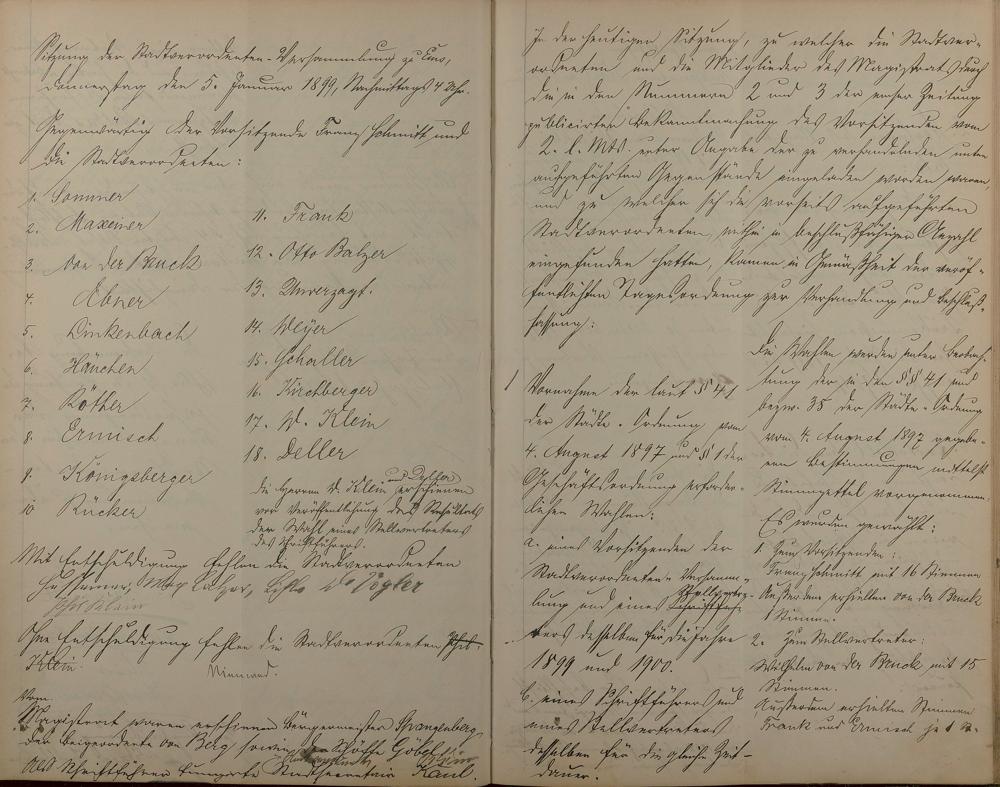 Sitzung der Stadtverordneten-Versammlung zu Ems,
Donnerstag den 5. Januar 1899, Nachmittags 4 Uhr.
Gegenwärtig der Vorsitzende Franz Schmitt und
die Stadtverordneten:
1. Sommer
2. Maxeiner
3. von der Bruck
4. Ebner
5. Linkenbach
6. Häuchen
7. Röther
8. Ermisch
9. Königsberger
10 Rücker
11. Frank
12. Otto Balzer
13. Unverzagt.
14. Meyer
15. Schaller
16. Kirchberger
17. W. Klein
18. Deller
die Herren W. Klein und Deller erschienen
vor Veröffentlichung des Resultats
der Wahl eines Stellvertreters
des Schriftführers.
Mit Entschuldigung fehlen die Stadtverordneten
Max Balzer, Vogler
Ohne Entschuldigung fehlen die Stadtverordneten
Klein.
Niemand.
Vom
Magistrat waren erschienen Bürgermeister Spangenberg,
der Beigeordnete von Berg sowie Schöffe Göbel
Als Schriftführer fungirte Stadtsecretair Kaul.
In der heutigen Sitzung, zu welcher die Stadtver-
ordneten und die Mitglieder des Magistrats durch
die in den Nummern 2 und 3 der Emser Zeitung
publicirten Bekanntmachung des Vorsitzenden vom
2. l. Mts. unter Angabe der zu verhandelnden unten
aufgeführten Gegenstände eingeladen worden waren,
und zu welcher sich die vorseits aufgeführten
Stadtverordneten, mithin in beschlußfähiger Anzahl
eingefunden hatten, kamen in Gemäßheit der veröf-
fentlichten Tagesordnung zur Verhandlung und Beschluß-
fassung:
1 Vornahme der laut §§ 41
der Städte-Ordnung vom
4. August 1897 und § 1 der
Geschäftsordnung erforder-
lichen Wahlen:
a. eines Vorsitzenden der
Stadtverordneten-Versamm-
lung und eines Stellvertre-
ters desselben für die Jahre
1899 und 1900.
b. eines Schriftführers und
eines Stellvertreters
desselben für die gleiche Zeit-
dauer.
Die Wahlen wurden unter Beobach-
tung der in den §§ 41 und
bezw. 35 der Städte-Ordnung
vom 4. August 1897 gegebe-
nen Bestimmungen mittelst
Stimmzettel vorgenommen.
Es wurden gewählt:
1. Zum Vorsitzenden:
Franz Schmitt mit 16 Stimmen
Außerdem erhielten von der Bruck
1 Stimme.
2. Zum Stellvertreter:
Wilhelm von der Bruck mit 15
Stimmen.
Außerdem erhielten Stimmen
Frank und Ermisch je 1